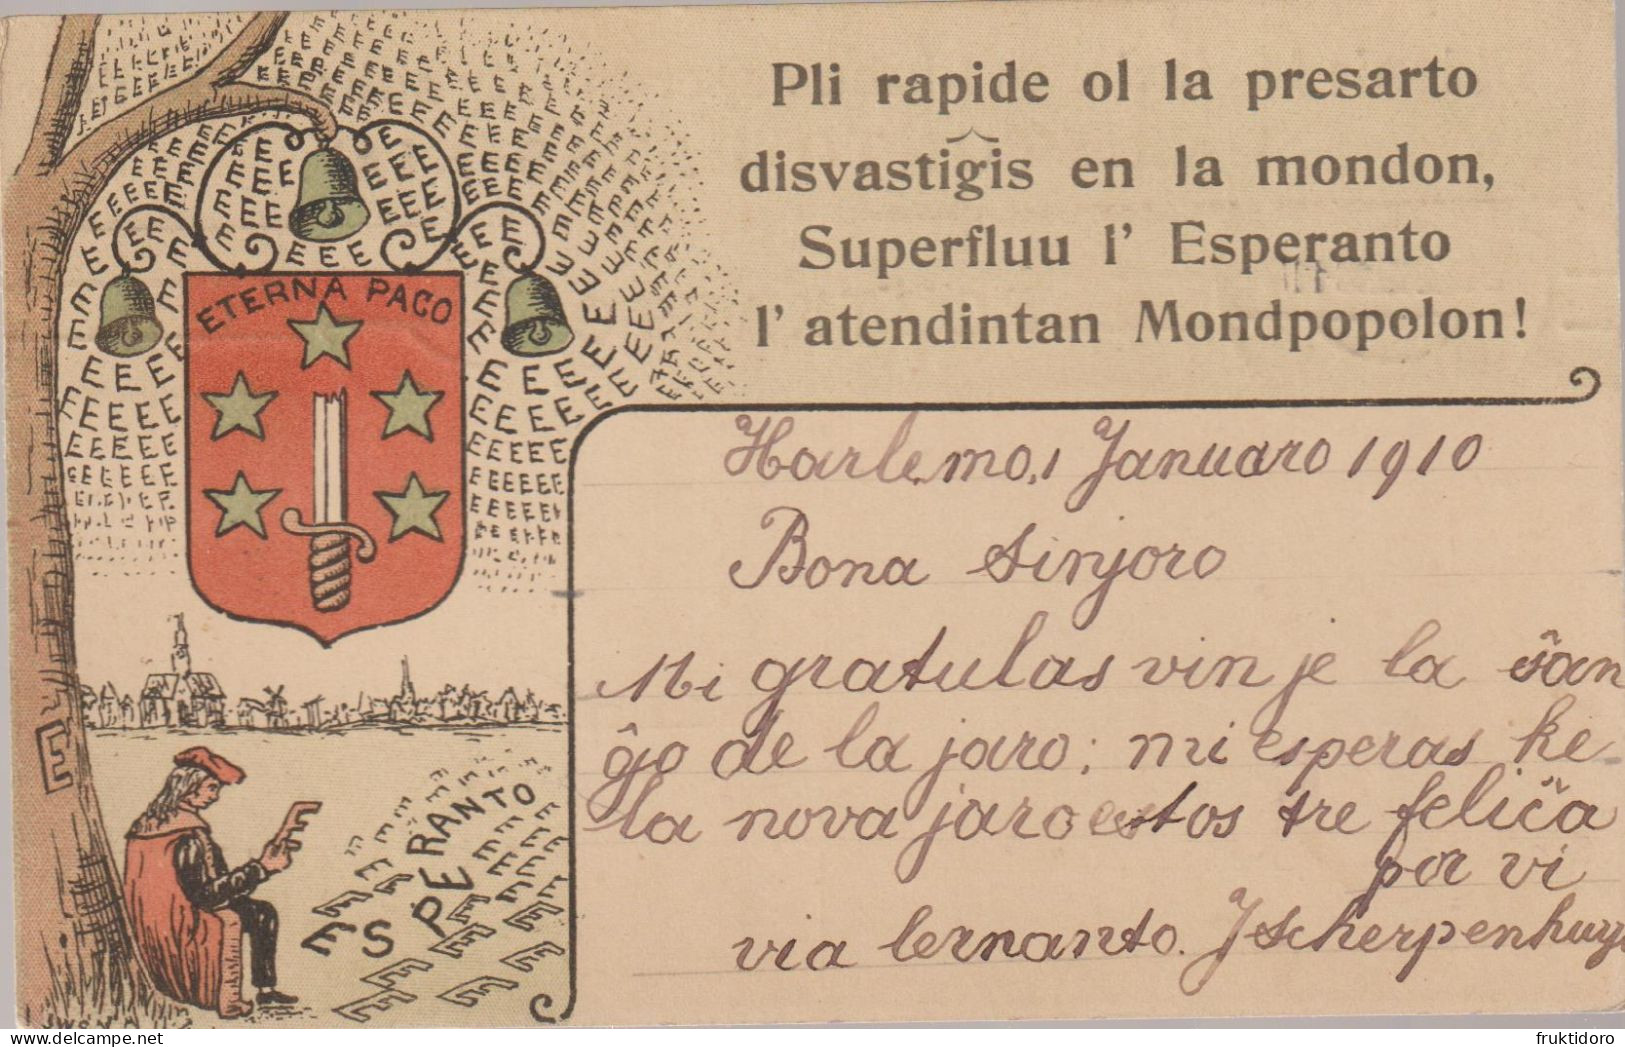 Pli rapide ol la presarto
disvastiĝis en la mondon,
Superfluu l' Esperanto
l' atendintan Mondpopolon!
ETERNA PACO
Harlemo, 1 Januaro 1910
Bona Sinjoro
Mi gratulas vin je la ŝan
ĝo de la jaro; mi esperas ke
la nova jaro estos tre feliĉa
por vi
via lernanto. J Scherpenhuyz
ESPERANTO
fruktidoro